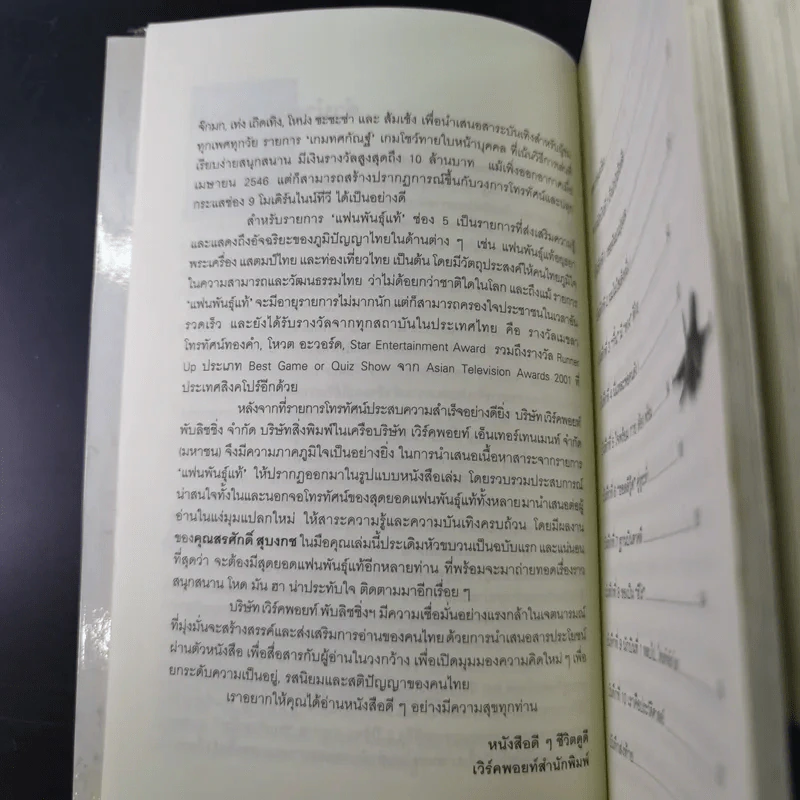 จ๊กมก, เท่ง เถิดเทิง, โหน่ง ชะชะช่า และ ส้มเช้ง เพื่อนำเสนอสาระบันเทิงสำหรับผู้ชม
ทุกเพศทุกวัย รายการ 'เกมทศกัณฐ์' เกมโชว์ทายใบหน้าบุคคล ที่เน้นวิธีการเล่นที่
เรียบง่ายสนุกสนาน มีเงินรางวัลสูงสุดถึง 10 ล้านบาท แม้เพิ่งออกอากาศเมื่อ
เมษายน 2546 แต่ก็สามารถสร้างปรากฏการณ์ขึ้นกับวงการโทรทัศน์
กระแสช่อง 9 โมเดิร์นไนน์ทีวี ได้เป็นอย่างดี
สำหรับรายการ 'แฟนพันธุ์แท้' ช่อง 5 เป็นรายการที่ส่งเสริมความรู้
และแสดงถึงอัจฉริยะของภูมิปัญญาไทยในด้านต่าง ๆ เช่น แฟนพันธุ์แท้
พระเครื่อง แสตมป์ไทย และท่องเที่ยวไทย เป็นต้น โดยมีวัตถุประสงค์ให้คนไทยภูมิใจ
ในความสามารถและวัฒนธรรมไทย ว่าไม่ด้อยกว่าชาติใดในโลก และถึงแม้ รายการ
'แฟนพันธุ์แท้' จะมีอายุรายการไม่มากนัก แต่ก็สามารถครองใจประชาชนในเวลาอัน
รวดเร็ว และยังได้รับรางวัลจากทุกสถาบันในประเทศไทย คือ รางวัลเมขลา
โทรทัศน์ทองคำ, โหวต อะวอร์ด, Star Entertainment Award รวมถึงรางวัล Runner
Up ประเภท Best Game or Quiz Show จาก Asian Television Awards 2001 ที่
ประเทศสิงคโปร์อีกด้วย
หลังจากที่รายการโทรทัศน์ประสบความสำเร็จอย่างดียิ่ง บริษัท เวิร์คพอยท์
พับลิชชิ่ง จำกัด บริษัทสิ่งพิมพ์ในเครือบริษัท เวิร์คพอยท์ เอ็นเทอร์เทนเมนท์ จำกัด
(มหาชน) จึงมีความภาคภูมิใจเป็นอย่างยิ่ง ในการนำเสนอเนื้อหาสาระจากรายการ
'แฟนพันธุ์แท้' ให้ปรากฏออกมาในรูปแบบหนังสือเล่ม โดยรวบรวมประสบการณ์
น่าสนใจทั้งในและนอกจอโทรทัศน์ของสุดยอดแฟนพันธุ์แท้ทั้งหลายมานำเสนอต่อผู้
อ่านในแง่มุมแปลกใหม่ ให้สาระความรู้และความบันเทิงครบถ้วน โดยมีผลงาน
ของคุณสรศักดิ์ สุบงกช ในมือคุณเล่มนี้ประเดิมหัวขบวนเป็นฉบับแรก และแน่นอน
ที่สุดว่า จะต้องมีสุดยอดแฟนพันธุ์แท้อีกหลายท่าน ที่พร้อมจะมาถ่ายทอดเรื่องราว
สนุกสนาน โหด มัน ฮา น่าประทับใจ ติดตามมาอีกเรื่อย ๆ
บริษัท เวิร์คพอยท์ พับลิชชิ่งฯ มีความเชื่อมั่นอย่างแรงกล้าในเจตนารมณ์
ที่มุ่งมั่นจะสร้างสรรค์และส่งเสริมการอ่านของคนไทย ด้วยการนำเสนอสารประโยชน์
ผ่านตัวหนังสือ เพื่อสื่อสารกับผู้อ่านในวงกว้าง เพื่อเปิดมุมมองความคิดใหม่ ๆ เพื่อ
ยกระดับความเป็นอยู่, รสนิยมและสติปัญญาของคนไทย
เราอยากให้คุณได้อ่านหนังสือดี ๆ อย่างมีความสุขทุกท่าน
หนังสือดี ๆ ชีวิตคูดี
เวิร์คพอยท์สำนักพิมพ์